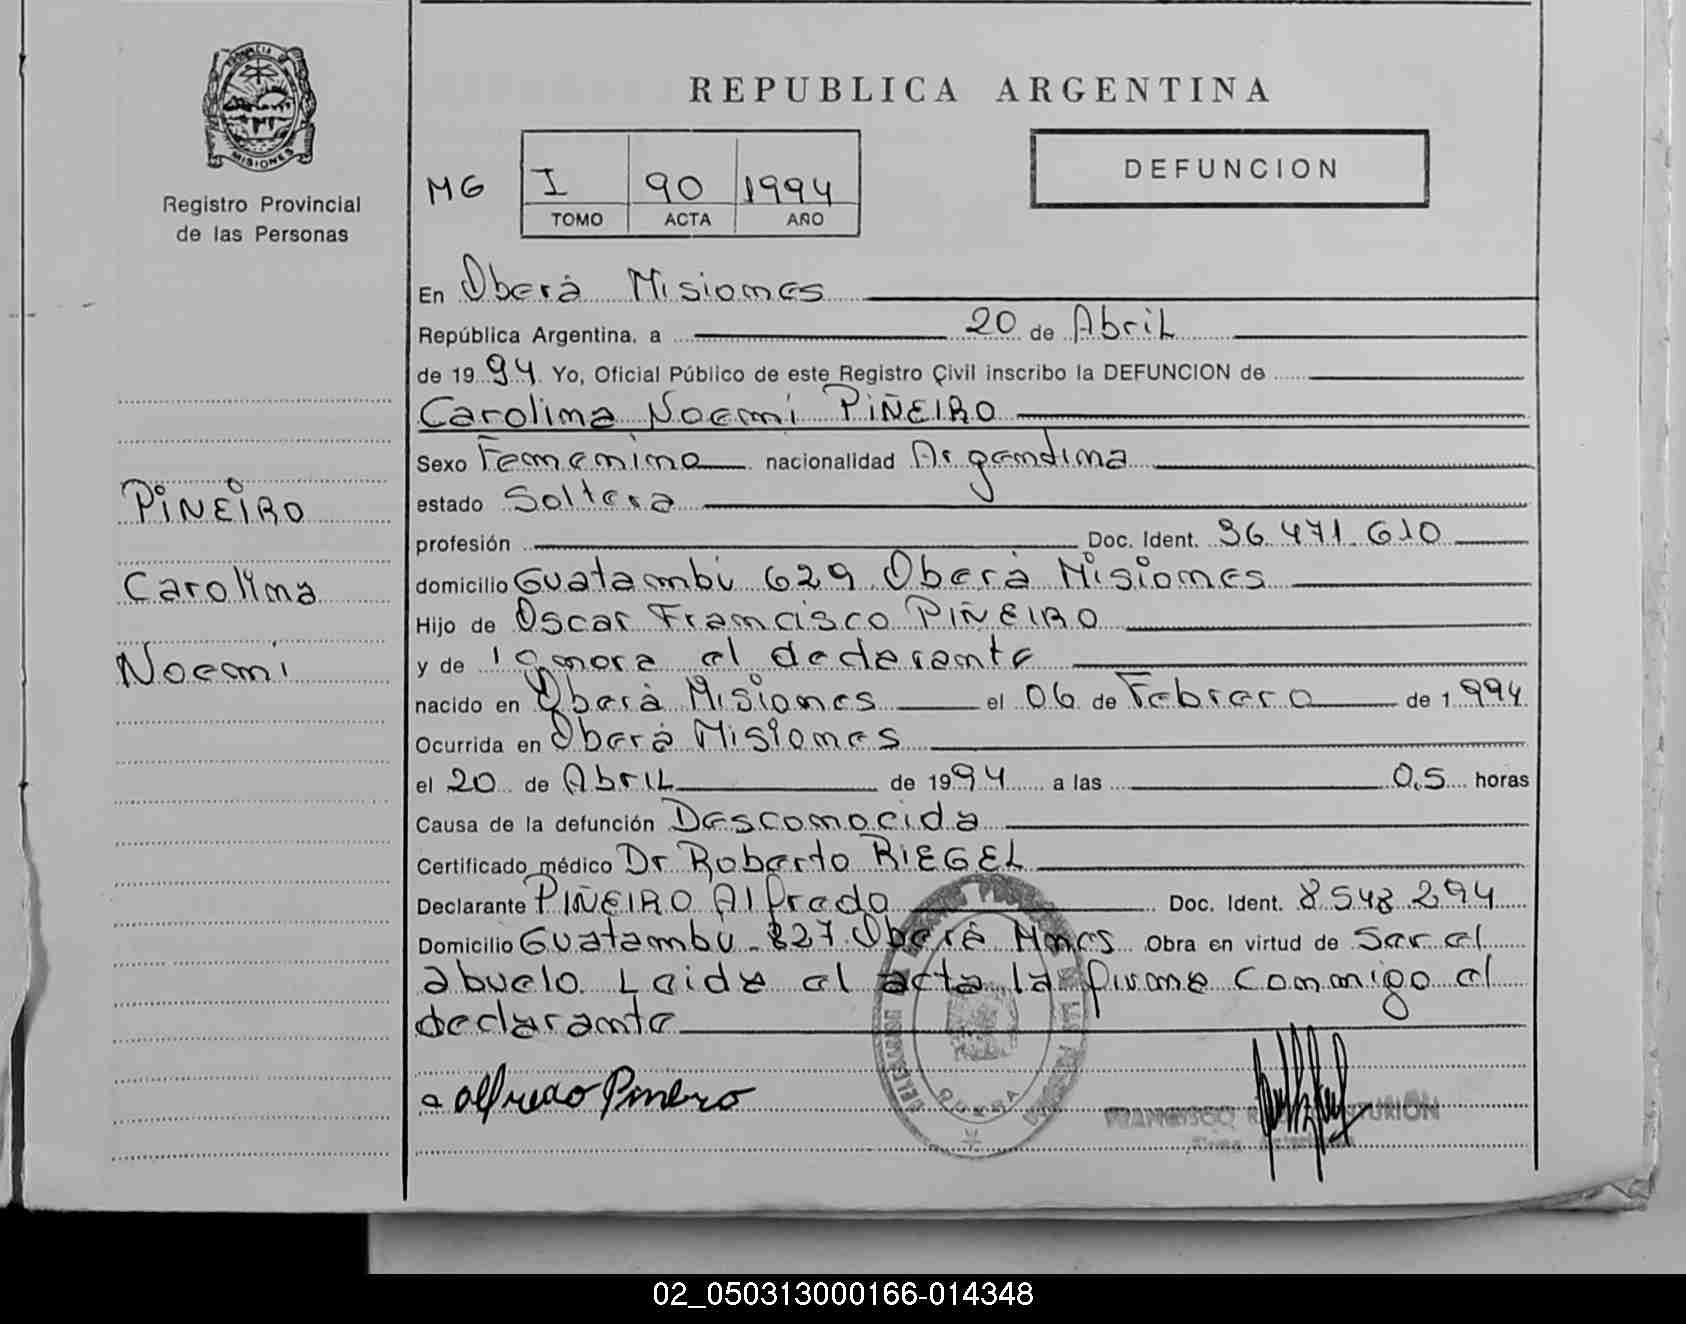 PROVINCIA DE
MISIONES
Registro Provincial
de las Personas
PIÑEIRO
Carolina
Noemi
REPUBLICA ARGENTINA
MG I 90 1994
TOMO ACTA AÑO
DEFUNCION
En Oberá Misiones
República Argentina, a 20 de Abril
de 1994 Yo, Oficial Público de este Registro Civil inscribo la DEFUNCION de
Carolina Noemi PIÑEIRO
Sexo Femenino nacionalidad Argentina
estado Soltera
profesión Doc. Ident. 36.471.610
domicilio Guatambú 629 Oberá Misiones
Hijo de Oscar Francisco PIÑEIRO
y de Ignora el declarante
nacido en Oberá Misiones el 06 de Febrero de 1994
Ocurrida en Oberá Misiones
el 20 de Abril de 1994 a las 0,5 horas
Causa de la defunción Desconocida
Certificado médico Dr Roberto RIEGEL
Declarante PIÑEIRO Alfredo Doc. Ident. 8548294
Domicilio Guatambu 827 Oberá Mnes Obra en virtud de Ser el
abuelo Leida el acta la firma conmigo el
declarante
a alfredo Piñeiro
OBERA
FRANCISCO
02_050313000166-014348